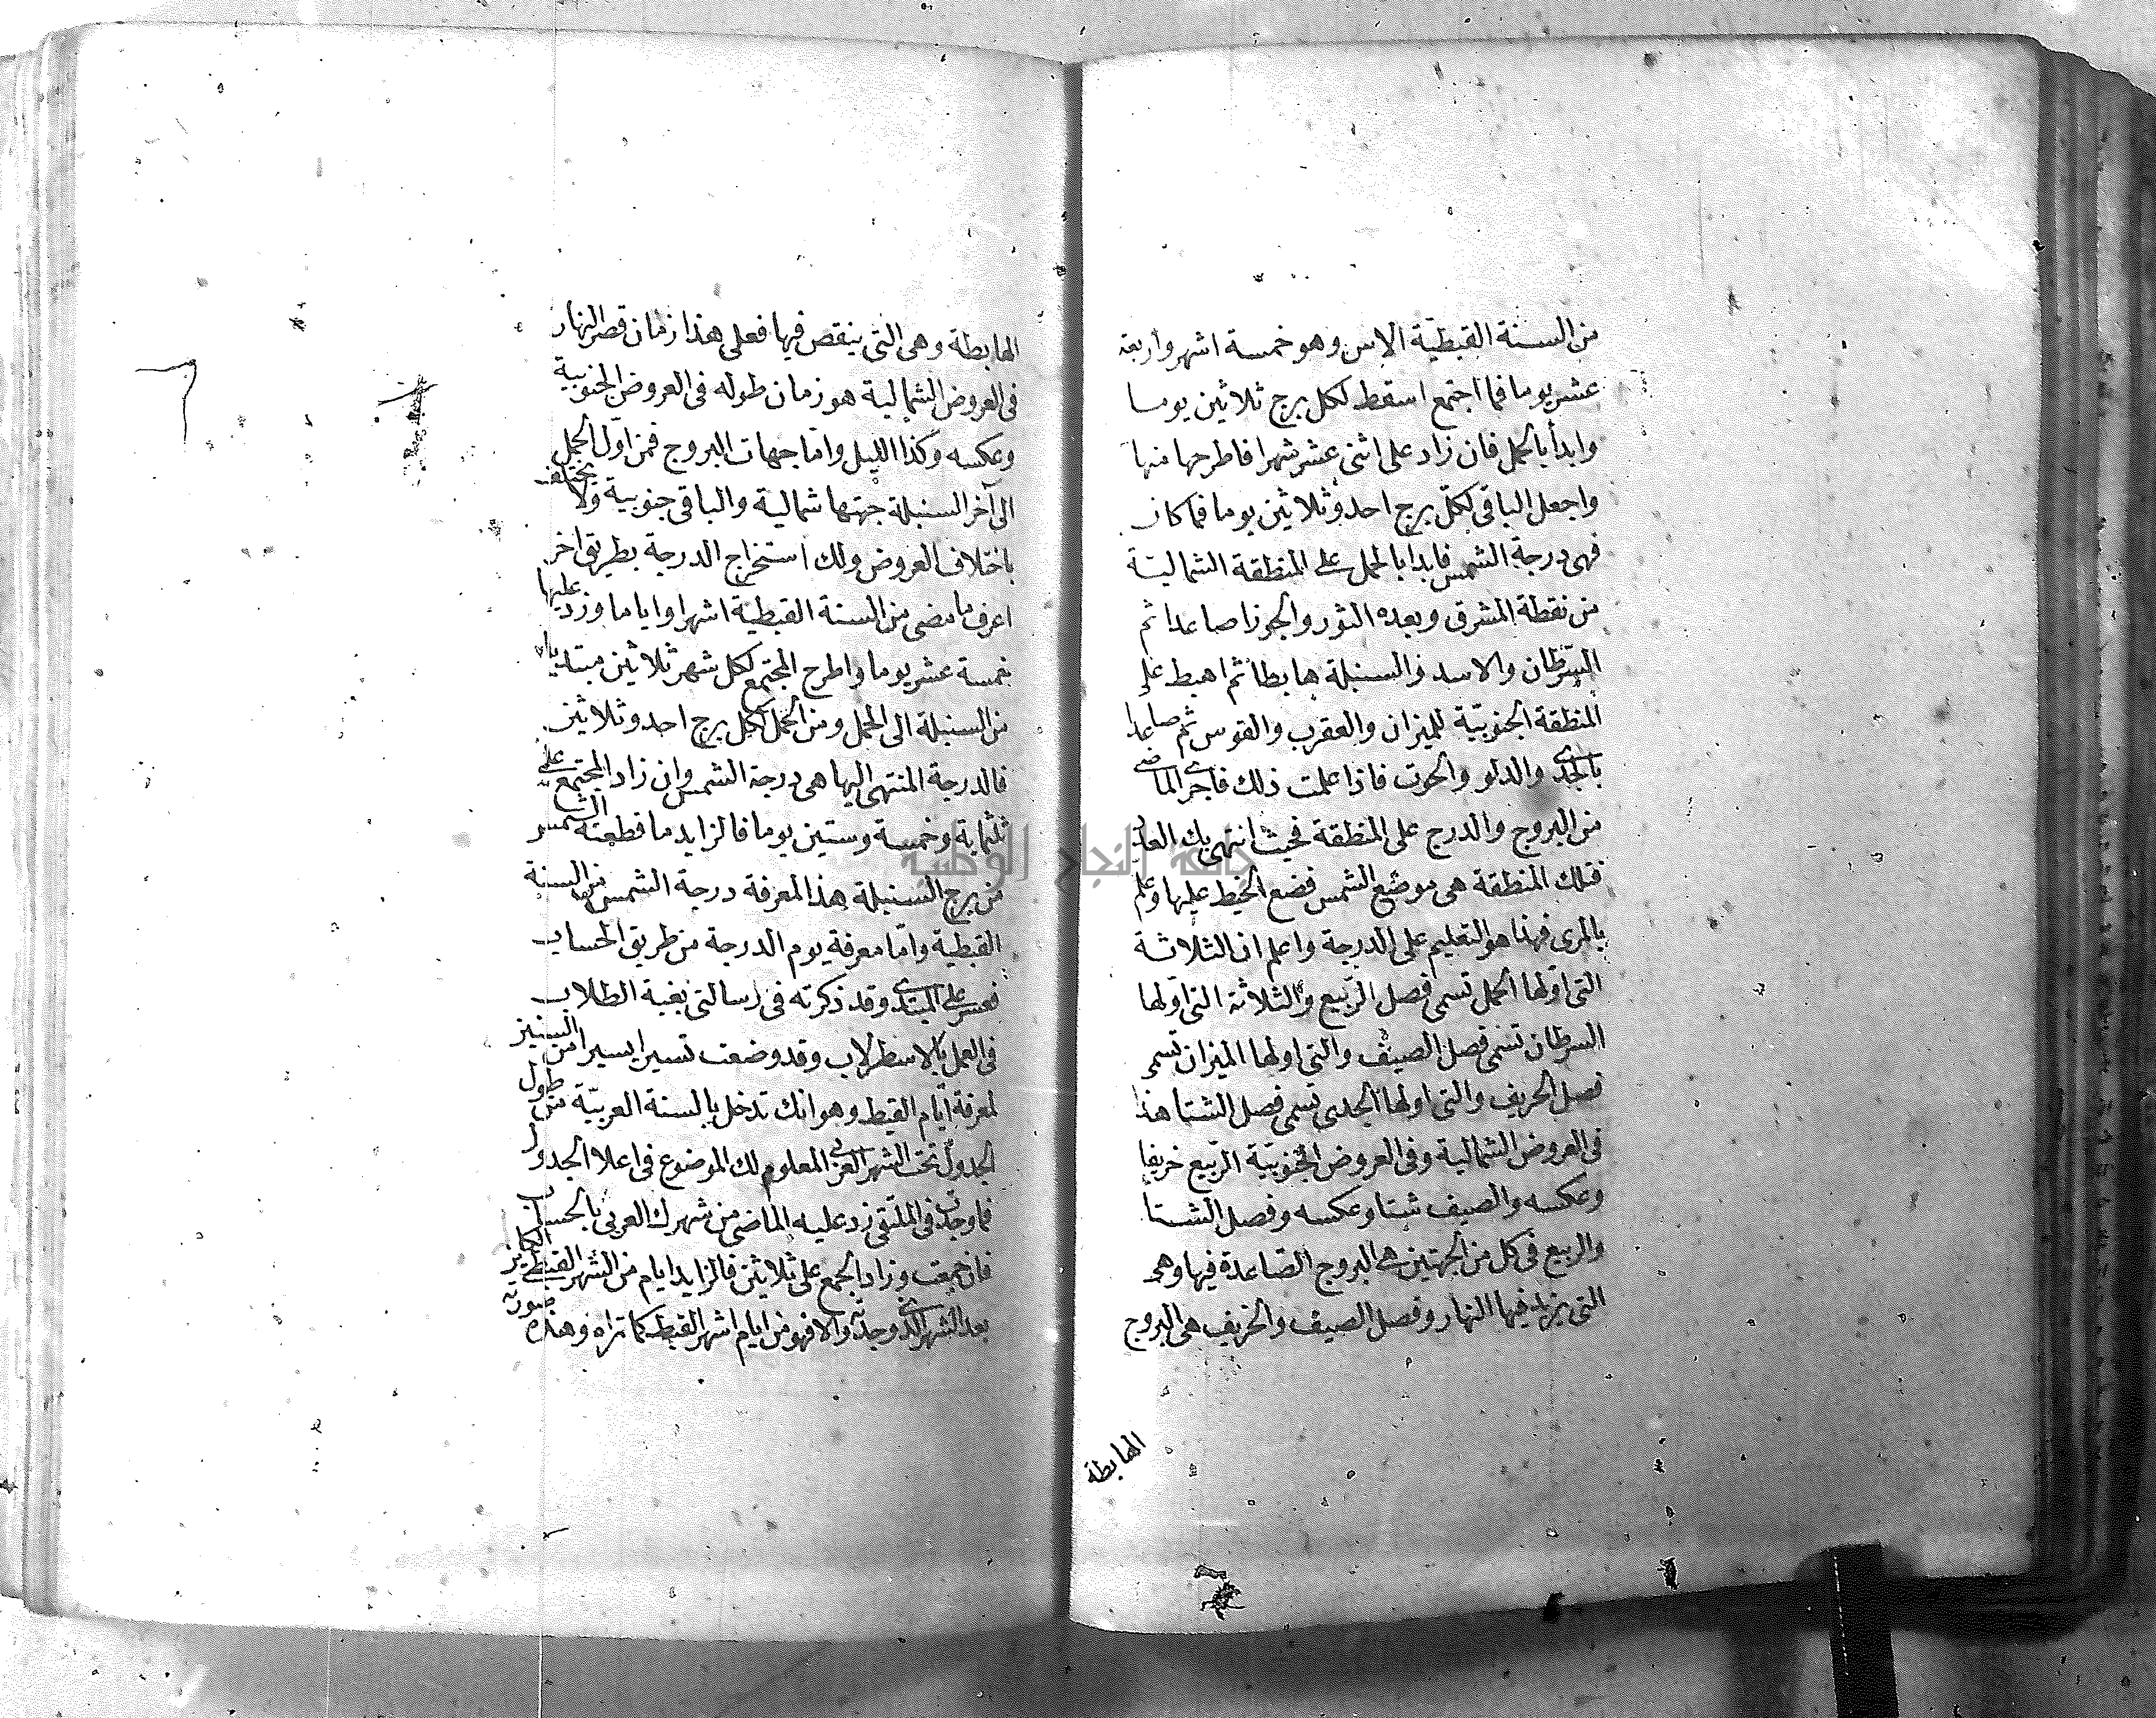 من السنة القبطية الاس وهو خمسة اشهر واربعة
عشر يوما فما اجتمع اسقط لكل برج ثلاثين يوما
وابدأ بالحمل فان زاد على اثنى عشر شهرا فاطرحها منها
واجعل الباقى لكل برج احد وثلاثين يوما فما كان
فهى درجة الشمس فابدا بالحمل على المنطقة الشمالية
من نقطة المشرق وبعده الثور والجوزا صاعدا ثم
السرطان والاسد والسنبلة هابطا ثم اهبط على
المنطقة الجنوبية للميزان والعقرب والقوس ثم صاعدا
بالجدى والدلو والحوت فاذا علمت ذلك فاجرى الماضى
من البروج والدرج على المنطقة فحيث انتهى بك العدد
فتلك المنطقة هى موضع الشمس فضع الخيط عليها وعلم
بالمرى فهذا هو التعليم على الدرجة واعلم ان الثلاثة
التى اولها الحمل تسمى فصل الربيع والثلاثة التى اولها
السرطان تسمى فصل الصيف والتى اولها الميزان تسمى
فصل الخريف والتى اولها الجدى تسمى فصل الشتا هذا
فى العروض الشمالية وفى العروض الجنوبية الربيع خريفا
وعكسه والصيف شتا وعكسه وفصل الشتا
والربيع فى كل من الجهتين هى البروج الصاعدة فيها وهى
التى يزيد فيها النهار وفصل الصيف والخريف هى البروج
الهابطة
الهابطة وهى التى ينقص فيها فعلى هذا زمان قصر النهار
فى العروض الشمالية هو زمان طوله فى العروض الجنوبية
وعكسه وكذا الليل واما جهات البروج فمن اول الحمل
الى آخر السنبلة جهتها شمالية والباقى جنوبية ولا يختلف
باختلاف العروض ولك استخراج الدرجة بطريق اخر
اعرف ما مضى من السنة القبطية اشهرا واياما وزد عليها
خمسة عشر يوما واطرح المجتمع لكل شهر ثلاثين مبتديا
من السنبلة الى الحمل ومن الحمل لكل برج احد وثلاثين
فالدرجة المنتهى اليها هى درجة الشمس وان زاد المجتمع على
ثلثماية وخمسة وستين يوما فالزايد ما قطعته الشمس
من برج السنبلة هذا لمعرفة درجة الشمس من السنة
القبطية واما معرفة يوم الدرجة من طريق الحساب
فعسر على المبتدى وقد ذكرته فى رسالتى بغية الطلاب
فى العمل بالاسطرلاب وقد وضعت تسيرا يسيرا من السنين
لمعرفة ايام القبط وهو انك تدخل بالسنة العربية من طول
الجدول تحت الشهر العربى المعلوم لك الموضوع فى اعلا الجدول
فما وجدت فى الملتقى زد عليه الماضى من شهرك العربى بالحساب
فان جمعت وزاد الجمع على ثلاثين فالزايد ايام من الشهر القبطى الكاين
بعد الشهر الذى وجدته والا فهو من ايام اشهر القبط كما تراه وهذه صورته
جامعة النجاح الوطنية